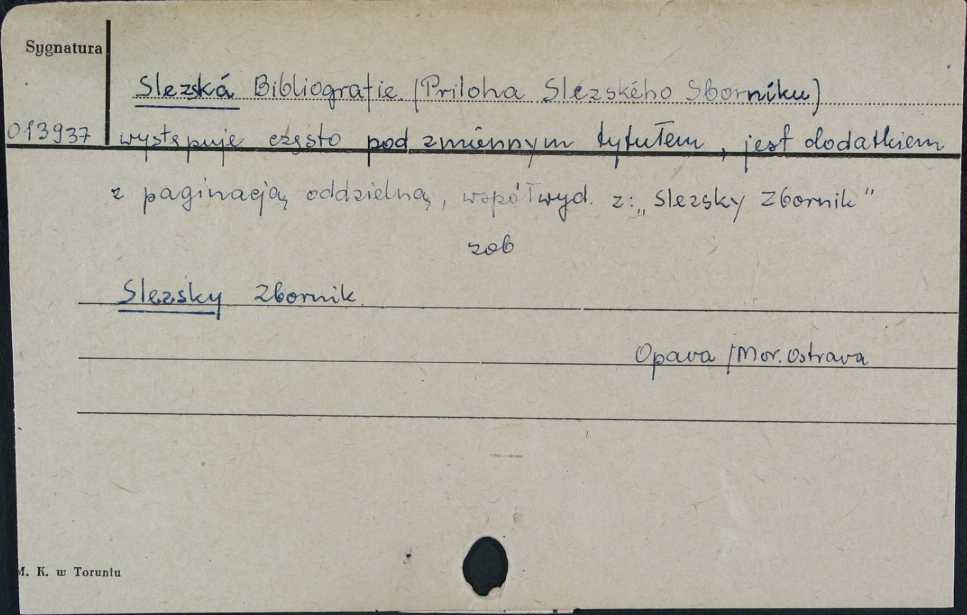 Sygnatura
Slezská Bibliografie (Priloha Slezského Sborníku)
013937 występuje często pod zmiennym tytułem, jest dodatkiem
z paginacją oddzielną, współwyd. z: „Slezsky Zbornik"
zob
Slezsky Zbornik
Opava /Mor. Ostrava
M. K. w Toruniu